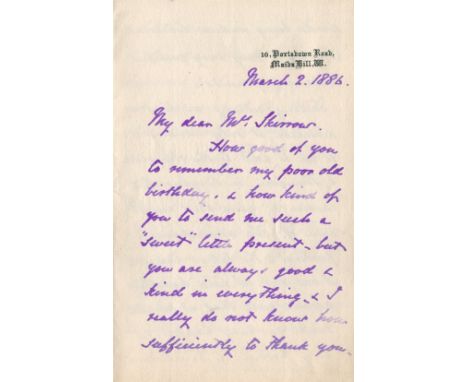 10, Portsdown Road,
Maida Hill. W.
March 2. 1886.
My dear Mrs. Skirrow.
How good of you
to remember my poor old
birthday. & how kind of
you to send me such a
"sweet" little present - but
you are always good &
kind in everything - & I
really do not know how
sufficiently to thank you -